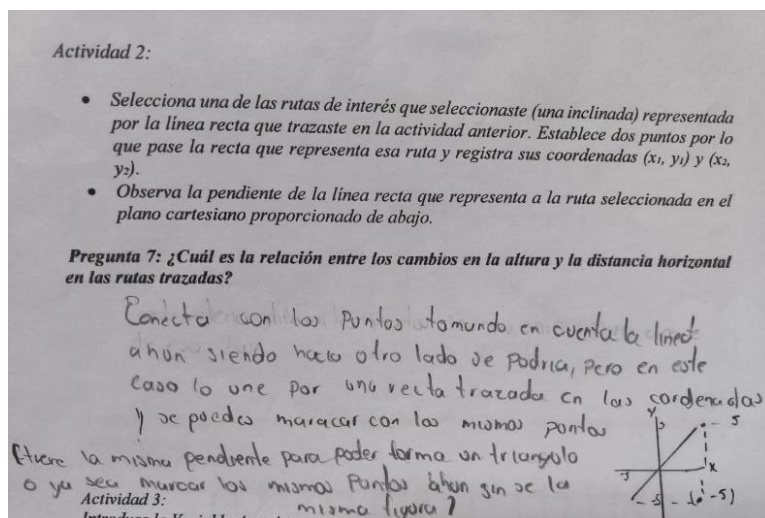 Actividad 2:
• Selecciona una de las rutas de interés que seleccionaste (una inclinada) representada
por la línea recta que trazaste en la actividad anterior. Establece dos puntos por lo
que pase la recta que representa esa ruta y registra sus coordenadas (x₁, y₁) y (x₂,
y₂).
• Observa la pendiente de la línea recta que representa a la ruta seleccionada en el
plano cartesiano proporcionado de abajo.
Pregunta 7: ¿Cuál es la relación entre los cambios en la altura y la distancia horizontal
en las rutas trazadas?
Conecta con los puntos tomundo en cuenta la linea
ahun siendo hacia otro lado se podria, pero en este
caso lo une por una recta trazada en las cordenadas
y se puedes maracar con los mismos puntos
la misma pendiente para poder forma un triangulo
o ya sea marcar los mismos puntos ahun sin se la
misma figura
y
5
5
-5
x
-5
-5)
Actividad 3: